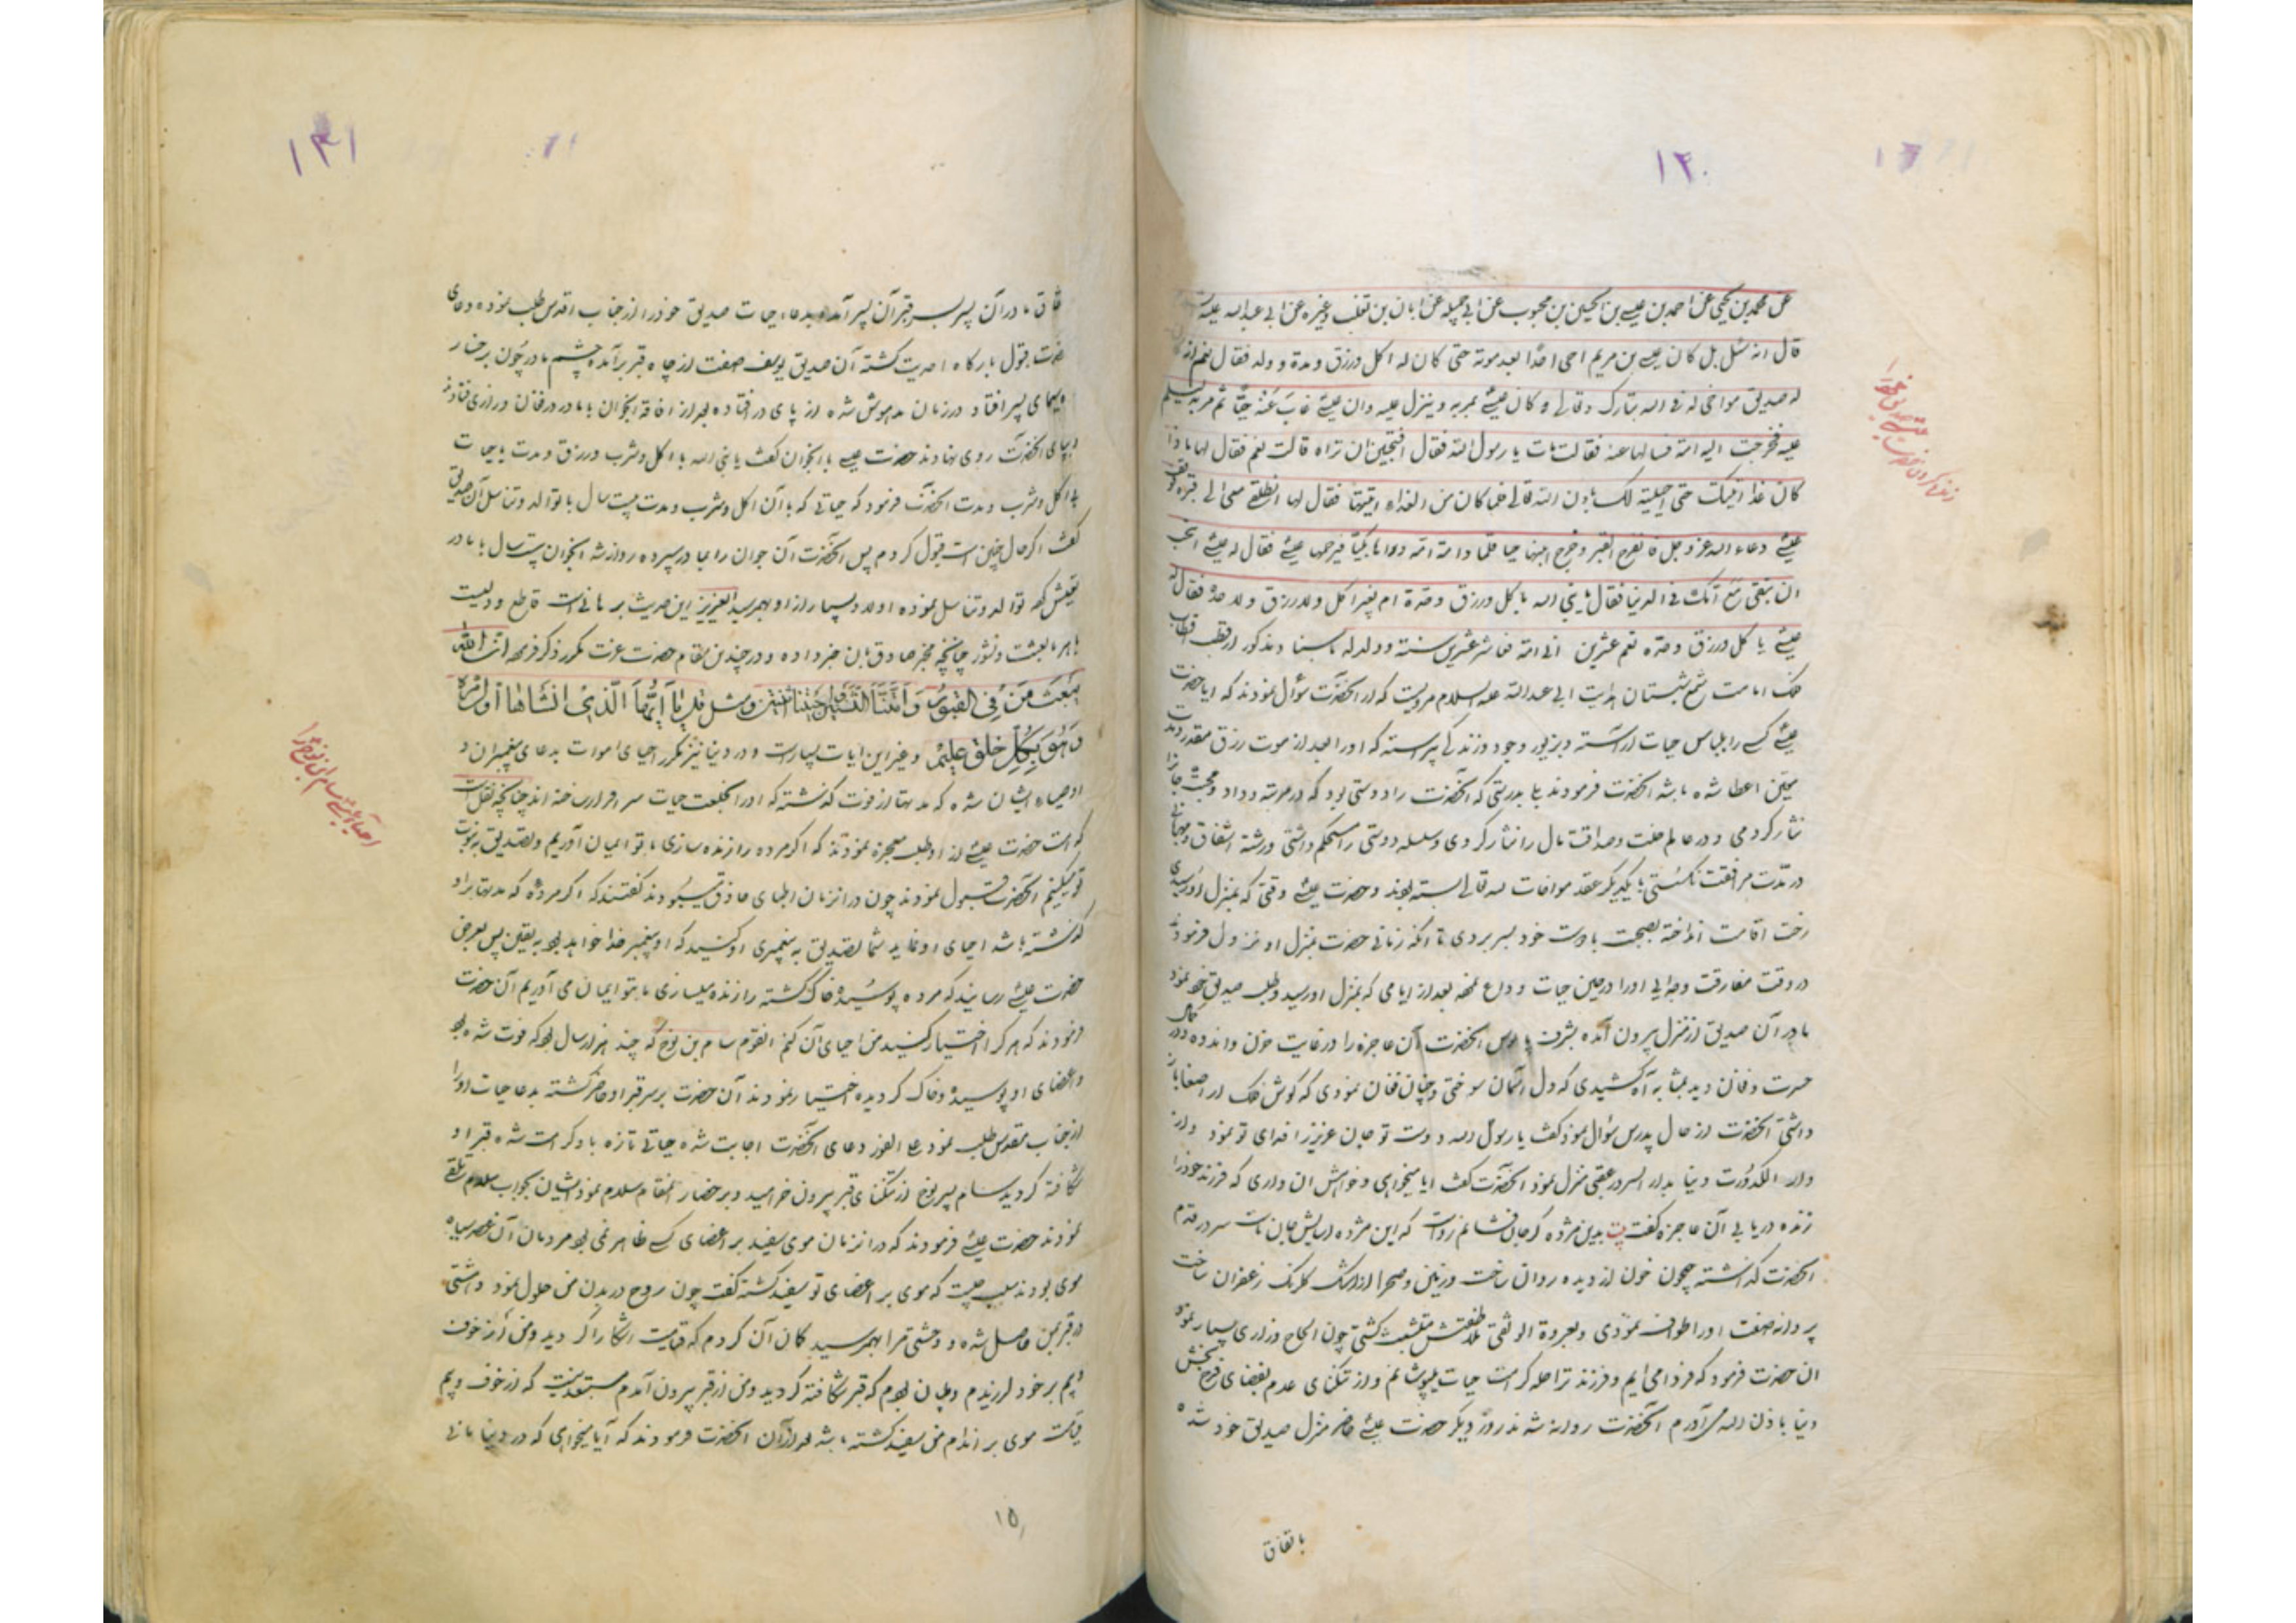 ۱۲۰
عن محمد بن یحیی عن احمد بن عیسی بن الحسین بن محبوب عن ابی جمیله عن ابان بن تغلب و غیره عن ابی عبدالله علیه
قال انه سئل بل کان عیسی بن مریم احی احدًا بعد موته حتی کان له اکل و رزق و مدة و ولد فقال نعم انه
له صدیق مواخی له فی الله تبارک و تعالی و کان عیسی یمر به و ینزل علیه و ان عیسی غابَ عَنه حیًّا ثم مر به لیسلم
علیه فخرجت الیه امه فسالها عنه فقالت مات یا رسول الله فقال افتحبین ان تراه قالت نعم فقال لها فاذا
کان غدا اتیتک حتی احییته لک باذن الله تعالی فلما کان من الغداه اتیتها فقال لها انطلقی معی الی قبره
عیسی دعاء الله عز و جل فانفرج القبر و خرج ابنها حیا فلما رأته امه و رآها بکیا فرحمها عیسی فقال له عیسی اتحب
ان تبقی مَعَ امّک فی الدنیا فقال یا نبی الله باکل و رزق و مدة ام بغیر اکل و لا رزق و لا مدة فقال له
عیسی باکل و رزق و مده نعم عشرین
فلک امامت شمع شبستان هدایت ابی عبدالله علیه السلام مرویست که از آنحضرت سؤال نمودند که ایا حضرت
عیسی کسی را بلباس حیات آراسته و بزیور وجود و زندگی پیراسته که او را بعد از موت رزق مقدر و مدت
معیّن اعطا شده باشد آنحضرت فرمودند بلی بدرستی که آنحضرت را دوستی بود که در مرتبه وداد و محبت جان را
نثار کردمی و در عالم خلت و صداقت مال را نثار کردی و سلسله دوستی را مستحکم داشتی و رشته اشفاق و مهربانی
در مدّت مرافقت نگسستی با یکدیگر عقد مواخات لله تعالی بسته بودند و حضرت عیسی وقتی که بمنزل او رسیدی
رخت اقامت انداخته بصحبت با دوست خود بسر بردی تا آنکه زمانی حضرت بمنزل او نزول فرمودند
در وقت مفارقت و جدایی او را در حین حیات وداع نموده بعد از ایامی که بمنزل او رسید و طلب صدیق خود نمود
مادر آن صدیق از منزل بیرون آمده بشرف پابوس آنحضرت آن عاجزه را در غایت حزن و اندوه و در کمال
حسرت و فغان دید بمثابه آه کشیدی که دل آسمان سوختی و چنان فغان نمودی که گوش فلک از اصغا باز
داشتی آنحضرت از حال پدرس سؤال نمود گفت یا رسول الله دوست تو جان عزیز را فدای تو نمود و از
دار الکدورت دنیا بدار السرور عقبی منزل نمود آنحضرت گفت ایا میخواهی و خواهش ان داری که فرزند خود را
زنده دریابی آن عاجزه گفت بیت بدین مژده گر جان فشانم رواست که این مژده آسایش جان ماست سر در قدم
آنحضرت گذاشته همچون خون از دیده روان ساخت و زمین و صحرا از اشک گلرنگ زعفران ساخت
پروانه صفت او را طواف نمودی و بعروة الوثقی ملاطفتش متشبث گشتی چون الحاح و زاری بسیار نموده
ان حضرت فرمود که فردا می‌ایم و فرزند ترا حله کرامت حیات میپوشانم و از تنگنای عدم بفضای فرح بخش
دنیا باذن الله می‌آورم آنحضرت روانه شدند روز دیگر حضرت عیسی حاضر منزل صدیق خود شده
باتفاق
زنده کردن حضرت عیسی صدیق خود را
۱۳۱
فاق مادر آن پسر بسر قبر آن پسر آمده بدعاء حیات صدیق خود را از جناب اقدس طلب نموده دعای
حضرت قبول بارگاه احدیت گشته آن صدیق یوسف صفت از چاه قبر برآمده چشم مادر چون بر رخسار
و سیمای پسر افتاد در زمان مدهوش شده از پای در افتاده بعد از افاقه آنجوان با مادر در فغان و زاری فتادند
و بپای آنحضرت روی نهادند حضرت عیسی با آنجوان گفت یا نبی الله با اکل و شرب و رزق و مدت یا حیات
بی اکل و شرب و مدت آنحضرت فرمود که حیاتی که با آن اکل و شرب و مدت بیست سال با توالد و تناسل آن صدیق
گفت اگر حال چنین است قبول کردم پس آنحضرت آن جوان را بمادر سپرده روانه شد آنجوان بیست سال با مادر
تعیش کرده توالد و تناسل نموده اولاد بسیار از او بهمرسید العزیز این حدیث برهانی است قاطع و دلیلیست
باهر بابعثت و نشور چنانچه مخبر صادق بان خبر داده و در چندین مقام حضرت عزت مکرر ذکر فرموده ان الله
یَبْعَثُ مَنْ فِی القُبُورِ وَ اَمَتَّنَا اثْنَتَیْنِ وَ اَحْیَیْتَنَا اثْنَتَیْنِ و مثل قل یُحییها الَّذی اَنْشَأَها اَوَّلَ مَرَّة
وَهُوَ بِکُلِّ خَلْقٍ عَلیمٌ و غیر این ایات بسیار است و در دنیا نیز مکرر احیای اموات بدعای پیغمبران و
اوصیاء ایشان شده که مدتها از فوت گذشته که او را بخلعت حیات سرافراز ساخته اند چنانچه نقل است
که امت حضرت عیسی از او طلب معجزه نمودند که اگر مرده را زنده سازی ما بتو ایمان آوریم و تصدیق بنبوت
تو میکنیم آنحضرت قبول نمودند چون در انزمان اطبای حاذق بسیار بودند گفتند که اگر مرده که مدتها بر او
گذشته باشد احیای او نماید شما تصدیق به پیغمبری او کنید که او پیغمبر خدا خواهد بود به یقین پس بعرض
حضرت عیسی رسانیدند که مرده پوسیده خاک گشته را زنده میسازی ما بتو ایمان می آوریم آن حضرت
فرمودند که هر کرا اختیار کنید من احیای آن کنم انقوم سام بن نوح که چند هزار سال بود که فوت شده بود
و اعضای او پوسیده و خاک گردیده اختیار نمودند آن حضرت بر سر قبر او حاضر گشته بدعا حیات او را
از جناب مقدس طلب نمود علی الفور دعای آنحضرت اجابت شده حیاتی تازه باو کرامت شده قبر او
شکافته گردید سام پسر نوح از تنگنای قبر بیرون خرامید و بر حضار انمقام سلام نمود ایشان بجواب سلام تلقی
نمودند حضرت عیسی فرمودند که در انزمان موی سفید بر اعضای کسی ظاهر نمی بود مردمان آن عصر سیاه
موی بودند سبب چیست که موی بر اعضای تو سفید گشته گفت چون روح در بدن من حلول نمود وحشتی
در قبر بمن حاصل شده و وحشتی مرا بهمرسید گمان آن کردم که قیامت آشکارا گردیده و من از خوف
و بیم بر خود لرزیدم و بجان بودم که قبر شکافته گردید و من از قبر بیرون آمدم مستبعد نیست که از خوف و بیم
قیامت موی بر اندام من سفید گشته باشد بعد از آن آنحضرت فرمودند که آیا میخواهی که در دنیا مانی
۱۵
احیاء عیسی سام ابن نوح را